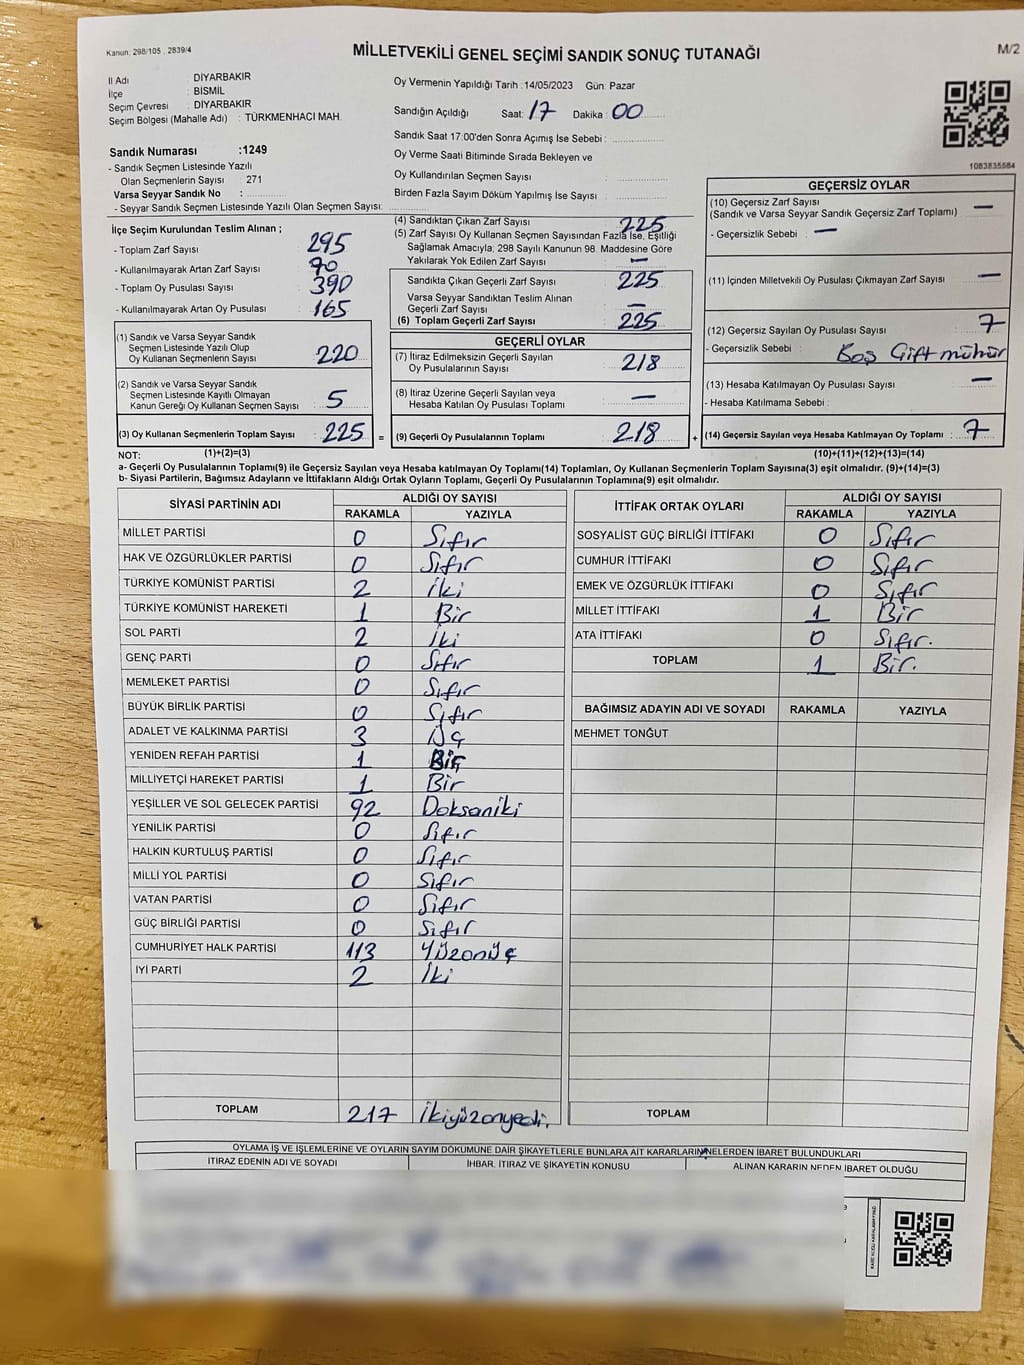 Kanun: 298/105 , 2839/4
MİLLETVEKİLİ GENEL SEÇİMİ SANDIK SONUÇ TUTANAĞI
M/2
İl Adı : DİYARBAKIR
İlçe : BİSMİL
Seçim Çevresi : DİYARBAKIR
Seçim Bölgesi (Mahalle Adı) : TÜRKMENHACI MAH.
Oy Vermenin Yapıldığı Tarih : 14/05/2023 Gün: Pazar
Sandığın Açıldığı Saat: 17 Dakika : 00
Sandık Saat 17:00'den Sonra Açımış İse Sebebi :
Oy Verme Saati Bitiminde Sırada Bekleyen ve
Oy Kullandırılan Seçmen Sayısı :
Birden Fazla Sayım Döküm Yapılmış İse Sayısı :
1083835584
Sandık Numarası :1249
- Sandık Seçmen Listesinde Yazılı
Olan Seçmenlerin Sayısı : 271
Varsa Seyyar Sandık No :
- Seyyar Sandık Seçmen Listesinde Yazılı Olan Seçmen Sayısı:
İlçe Seçim Kurulundan Teslim Alınan ;
- Toplam Zarf Sayısı : 295
- Kullanılmayarak Artan Zarf Sayısı : 70
- Toplam Oy Pusulası Sayısı : 390
- Kullanılmayarak Artan Oy Pusulası : 165
(1) Sandık ve Varsa Seyyar Sandık
Seçmen Listesinde Yazılı Olup
Oy Kullanan Seçmenlerin Sayısı : 220
(2) Sandık ve Varsa Seyyar Sandık
Seçmen Listesinde Kayıtlı Olmayan
Kanun Gereği Oy Kullanan Seçmen Sayısı : 5
(3) Oy Kullanan Seçmenlerin Toplam Sayısı : 225 =
(4) Sandıktan Çıkan Zarf Sayısı : 225
(5) Zarf Sayısı Oy Kullanan Seçmen Sayısından Fazla İse, Eşitliği
Sağlamak Amacıyla, 298 Sayılı Kanunun 98. Maddesine Göre
Yakılarak Yok Edilen Zarf Sayısı : —
Sandıkta Çıkan Geçerli Zarf Sayısı : 225
Varsa Seyyar Sandıktan Teslim Alınan
Geçerli Zarf Sayısı : —
(6) Toplam Geçerli Zarf Sayısı : 225
GEÇERLİ OYLAR
(7) İtiraz Edilmeksizin Geçerli Sayılan
Oy Pusulalarının Sayısı : 218
(8) İtiraz Üzerine Geçerli Sayılan veya
Hesaba Katılan Oy Pusulası Toplamı : —
(9) Geçerli Oy Pusulalarının Toplamı : 218 +
GEÇERSİZ OYLAR
(10) Geçersiz Zarf Sayısı
(Sandık ve Varsa Seyyar Sandık Geçersiz Zarf Toplamı) : —
- Geçersizlik Sebebi : —
(11) İçinden Milletvekili Oy Pusulası Çıkmayan Zarf Sayısı : —
(12) Geçersiz Sayılan Oy Pusulası Sayısı : 7
- Geçersizlik Sebebi : Boş Çift mühür
(13) Hesaba Katılmayan Oy Pusulası Sayısı : —
- Hesaba Katılmama Sebebi :
(14) Geçersiz Sayılan veya Hesaba Katılmayan Oy Toplamı : 7
NOT: (1)+(2)=(3)
(10)+(11)+(12)+(13)=(14)
a- Geçerli Oy Pusulalarının Toplamı(9) ile Geçersiz Sayılan veya Hesaba katılmayan Oy Toplamı(14) Toplamları, Oy Kullanan Seçmenlerin Toplam Sayısına(3) eşit olmalıdır. (9)+(14)=(3)
b- Siyasi Partilerin, Bağımsız Adayların ve İttifakların Aldığı Ortak Oyların Toplamı, Geçerli Oy Pusulalarının Toplamına(9) eşit olmalıdır.
SİYASİ PARTİNİN ADI ALDIĞI OY SAYISI
RAKAMLA YAZIYLA
MİLLET PARTİSİ 0 Sıfır
HAK VE ÖZGÜRLÜKLER PARTİSİ 0 Sıfır
TÜRKİYE KOMÜNİST PARTİSİ 2 İki
TÜRKİYE KOMÜNİST HAREKETİ 1 Bir
SOL PARTİ 2 İki
GENÇ PARTİ 0 Sıfır
MEMLEKET PARTİSİ 0 Sıfır
BÜYÜK BİRLİK PARTİSİ 0 Sıfır
ADALET VE KALKINMA PARTİSİ 3 Üç
YENİDEN REFAH PARTİSİ 1 Bir
MİLLİYETÇİ HAREKET PARTİSİ 1 Bir
YEŞİLLER VE SOL GELECEK PARTİSİ 92 Doksaniki
YENİLİK PARTİSİ 0 Sıfır
HALKIN KURTULUŞ PARTİSİ 0 Sıfır
MİLLİ YOL PARTİSİ 0 Sıfır
VATAN PARTİSİ 0 Sıfır
GÜÇ BİRLİĞİ PARTİSİ 0 Sıfır
CUMHURİYET HALK PARTİSİ 113 Yüzonüç
İYİ PARTİ 2 İki
TOPLAM 217 İkiyüzonyedi.
İTTİFAK ORTAK OYLARI ALDIĞI OY SAYISI
RAKAMLA YAZIYLA
SOSYALİST GÜÇ BİRLİĞİ İTTİFAKI 0 Sıfır
CUMHUR İTTİFAKI 0 Sıfır
EMEK VE ÖZGÜRLÜK İTTİFAKI 0 Sıfır
MİLLET İTTİFAKI 1 Bir
ATA İTTİFAKI 0 Sıfır.
TOPLAM 1 Bir.
BAĞIMSIZ ADAYIN ADI VE SOYADI RAKAMLA YAZIYLA
MEHMET TONĞUT
TOPLAM
OYLAMA İŞ VE İŞLEMLERİNE VE OYLARIN SAYIM DÖKÜMÜNE DAİR ŞİKAYETLERLE BUNLARA AİT KARARLARIN NELERDEN İBARET BULUNDUKLARI
İTİRAZ EDENİN ADI VE SOYADI İHBAR, İTİRAZ VE ŞİKAYETİN KONUSU ALINAN KARARIN NEDEN İBARET OLDUĞU